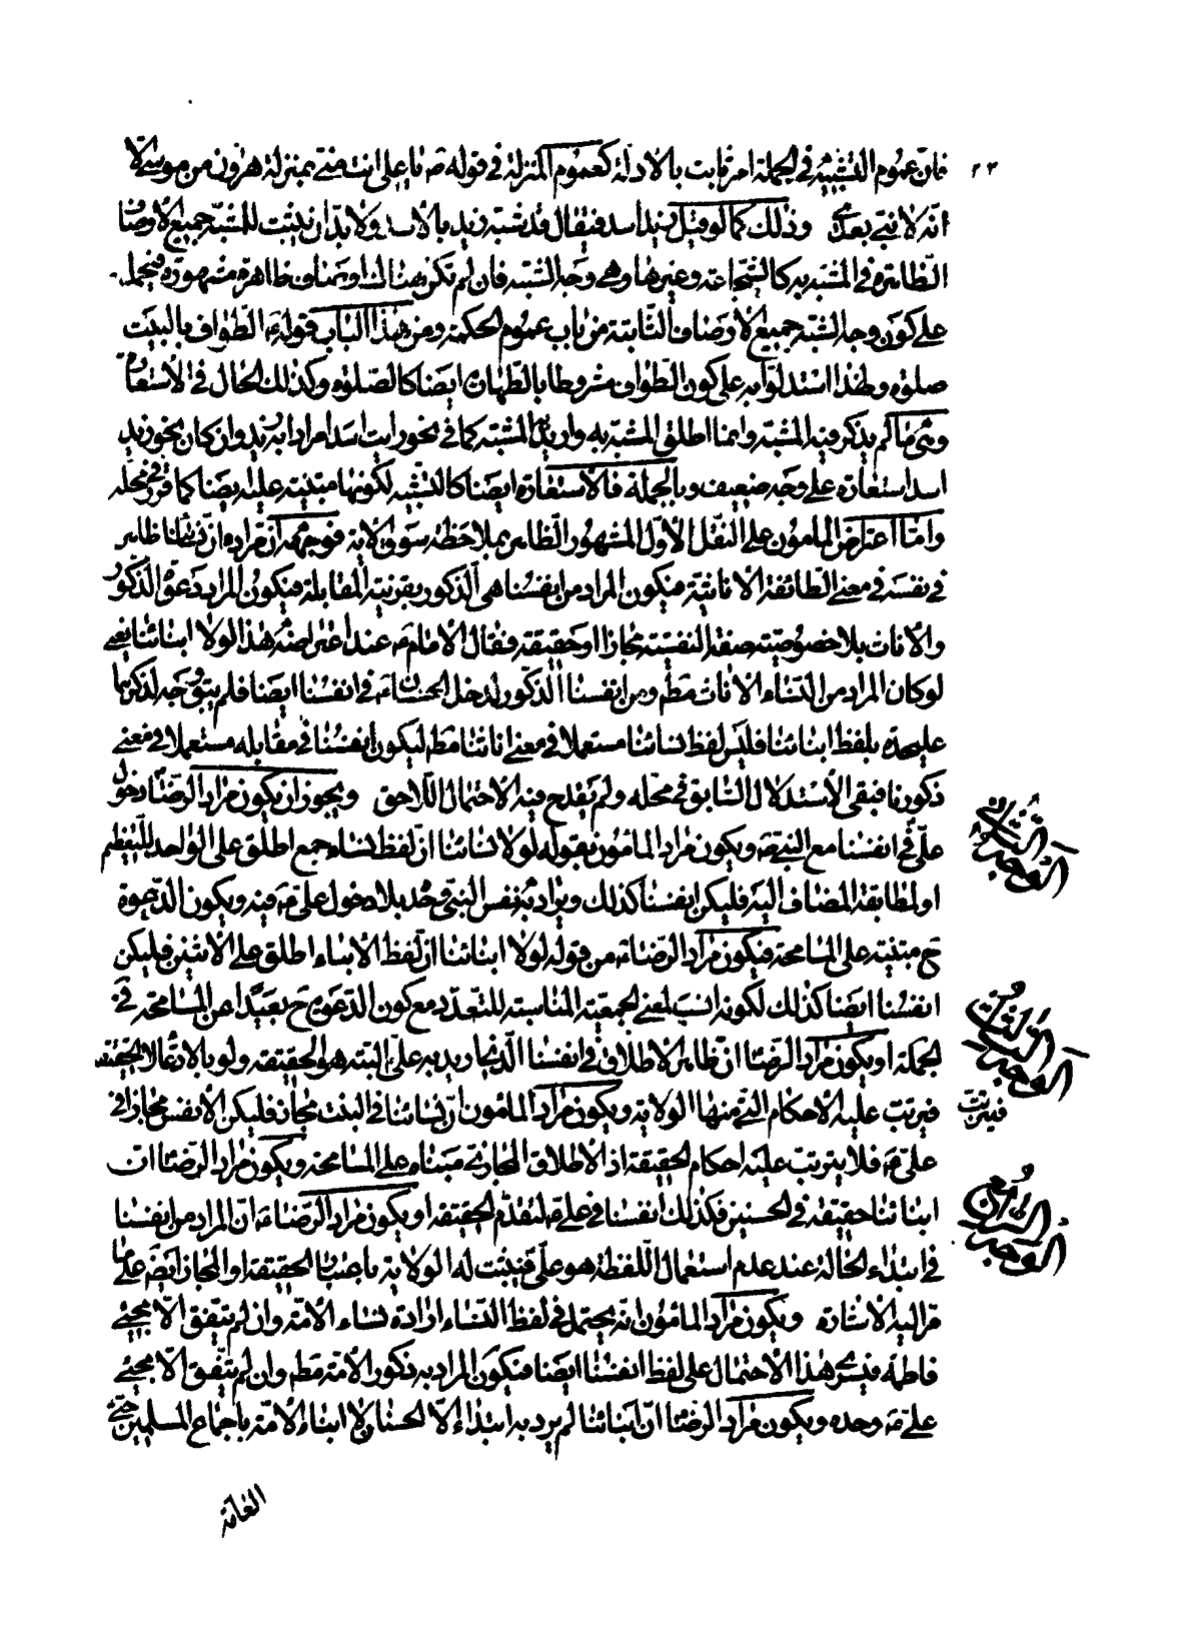 ٢٣
فان عموم التشبيه فى الجملة امر ثابت بالادلة كعموم المنزلة فى قوله ص يا على انت منى بمنزلة هرون من موسى الا
انه لا نبى بعدى وذلك كما لو قيل زيد اسد فيقال قد شبه زيد بالاسد ولا بد ان يثبت للمشبه جميع الاوصاف
الظاهرة فى المشبه به كالشجاعة وغيرها وهى وجه الشبه فان لم تكن هناك اوصاف ظاهرة مشهورة فيحمل
على كون وجه الشبه جميع الاوصاف الثابتة من باب عموم الحكمة ومن هذا الباب قوله ع الطواف بالبيت
صلوة ولهذا استدلوا به على كون الطواف مشروطا بالطهارة ايضا كالصلوة وكذلك الحال فى الاستعارة
وهى ما لم يذكر فيه المشبه وانما اطلق المشبه به واريد المشبه كما فى نحو رايت اسدا مرادا به زيد وان كان نحو زيد
اسد استعارة على وجه ضعيف وبالجملة فالاستعارة ايضا كالتشبيه لكونها مبتنية عليه ايضا كما قرر فى محله
واما اعتراض المامون على النقل الاول المشهور الظاهر بملاحظة سوق الاية فوجهه ان مراده ان نسائنا ظاهر
فى نفسه فى معنى الطائفة الاناثية فيكون المراد من انفسنا هى الذكور بقرينة المقابلة فيكون المراد دعوة الذكور
والاناث بلا خصوصية صفة النفسية مجازا او حقيقة فقال الامام ع عند اعتراضه هذا لولا ابنائنا يعنى
لو كان المراد من النساء الاناث مطم ومن انفسنا الذكور لدخل الحسنان ع فى انفسنا ايضا فلم يبق وجه لذكرهما
عليحدة بلفظ ابنائنا فليس لفظ نسائنا مستعملا فى معنى اناثنا مطم ليكون انفسنا فى مقابله مستعملا فى معنى
ذكورنا فبقى الاستدلال السابق فى محله ولم يقدح فيه الاحتمال اللاحق ويجوز ان يكون مراد الرضا دخول
على فى انفسنا مع النبى ص ويكون مراد المامون بقوله لولا نسائنا ان لفظ نساء جمع اطلق على الواحد للتعظيم
او لمطابقة المضاف اليه فليكن انفسنا كذلك ويراد به نفس النبى وحده بلا دخول على ع فيه ويكون الدعوة
ح مبتنية على المسامحة فيكون مراد الرضا ع من قوله لولا ابنائنا ان لفظ الابناء اطلق على الاثنين فليكن
انفسنا ايضا كذلك لكونه انسب لمعنى الجمعية المناسبة للتعدد مع كون الدعوة ح بعيدا عن المسامحة فى
الجملة او يكون مراد الرضا ان ظاهر الاطلاق فى انفسنا الذى اريد به على البته هو الحقيقة ولو بالادعاء لا الحقيقة
فيترتب عليه الاحكام التى منها الولاية ويكون مراد المامون ان نسائنا فى البنت مجاز فليكن الانفس مجازا فى
على ع فلا يترتب عليه احكام الحقيقة اذ الاطلاق المجازى مبناه على المسامحة ويكون مراد الرضا ان
ابنائنا حقيقة فى الحسنين فكذلك انفسنا فى على ع لتقدم الحقيقة او يكون مراد الرضا ع ان المراد من انفسنا
فى ابتداء الحالة عند عدم استعمال اللفظ هو على فيثبت له الولاية باعتبار الحقيقة او المجاز ايضا على ما
مر اليه الاشارة ويكون مراد المامون انه يحتمل فى لفظ النساء ارادة نساء الامة وان لم يتفق الا مجىء
فاطمة فيسرى هذا الاحتمال على لفظ انفسنا ايضا فيكون المراد به ذكور الامة مطم وان لم يتفق الا مجىء
على ع وحده ويكون مراد الرضا ان ابنائنا لم يرد به ابتداء الا الحسنان لا ابناء الامة باجماع المسلمين حتى
الوجه الثانى
الوجه الثالث
فيترتب
الوجه الرابع
العامة